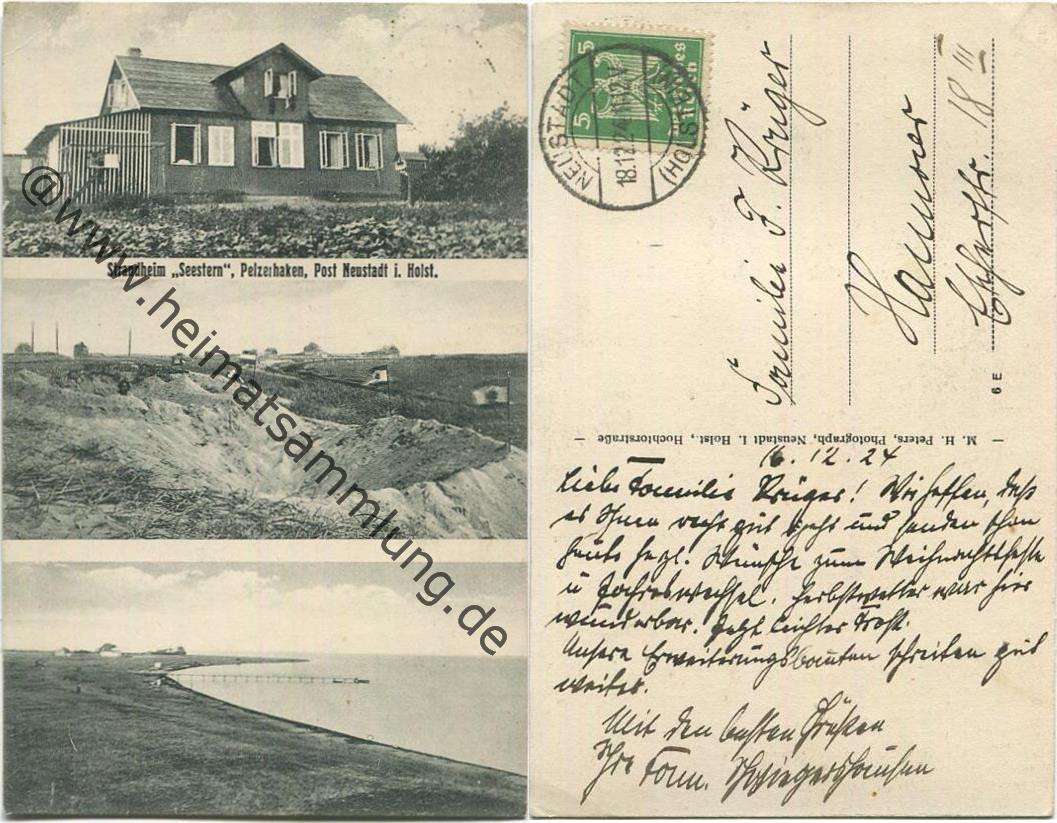 Strandheim „Seestern“, Pelzerhaken, Post Neustadt i. Holst.
@www.heimatsammlung.de
5 5
Deutsches Reich
5
NEUSTADT
18.12.24
(HOLSTEIN)
Familie F. Krüger
Hannover
18 III
6 E
— M. H. Peters, Photograph, Neustadt i. Holst., Hochtorstraße —
16.12.24
Liebe Familie Krüger! Wir hoffen, daß
es Ihnen recht gut geht und senden schon
heute herzl. Wünsche zum Weihnachtsfeste
u Jahreswechsel. Herbstwetter war hier
wunderbar. Jetzt leichter Frost.
Unsere Erweiterungsbauten schreiten gut
weiter.
Mit den besten Grüßen
Ihre Fam.